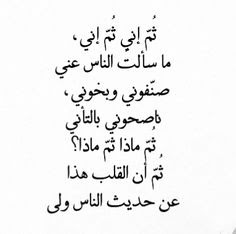 ثُمّ إني ثُمّ إني،
ما سألت الناس عني
صنّفوني وبخوني،
ناصحوني بالتأني
ثُمّ ماذا ثمّ ماذا؟
ثُمّ أن القلب هذا
عن حديث الناس ولى